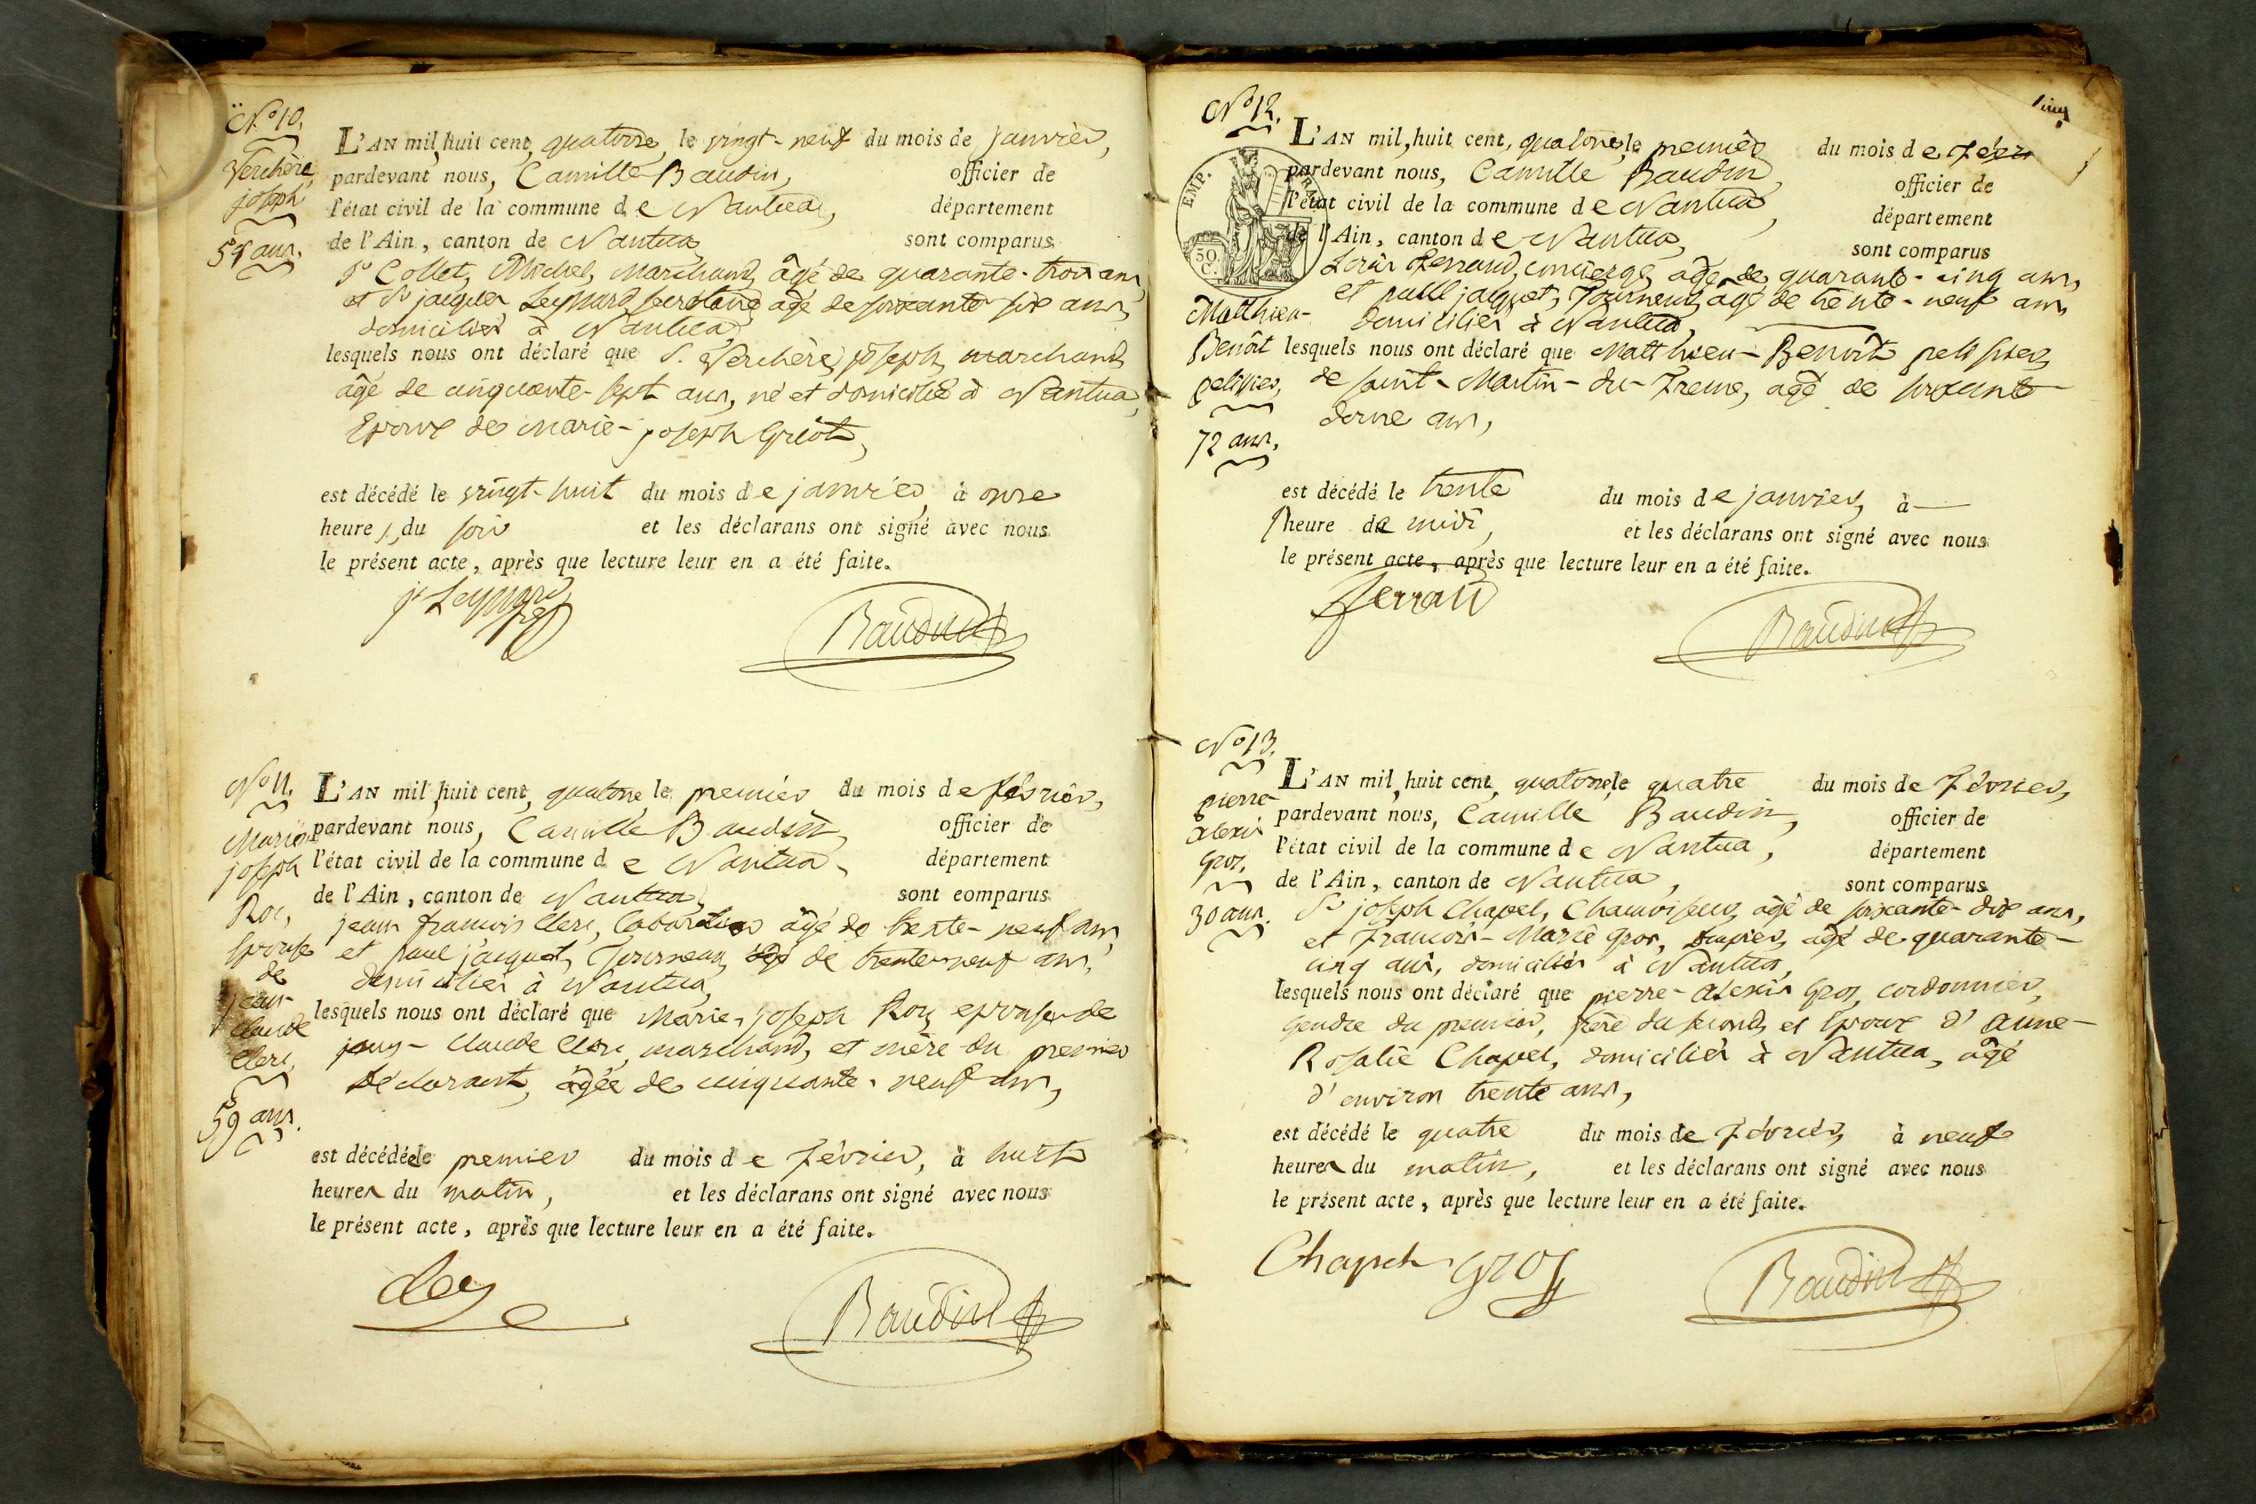 N.o 10.
Verchère
joseph
57 ans.
L'AN mil, huit cent, quatorze, le vingt-neuf du mois de janvier,
pardevant nous, Camille Baudin, officier de
l'état civil de la commune de Nantua, département
de l'Ain, canton de Nantua, sont comparus
Sr Collet, Michel, Marchand, âgé de quarante-trois ans,
et Sr jacques Leynard secrétaire âgé de soixante six ans,
domiciliés à Nantua,
lesquels nous ont déclaré que S. Verchère, joseph, marchand,
âgé de cinquante-sept ans, né et domicilié à Nantua,
Epoux de Marie-joseph
est décédé le vingt-huit du mois de janvier, à onze
heures, du soir et les déclarans ont signé avec nous
le présent acte, après que lecture leur en a été faite.
jq Leynard
Baudin
N.o 11.
Marie
joseph
Roi,
Epouse
de
jean-
Claude
Clerc,
59 ans.
L'AN mil huit cent, quatorze, le premier du mois de février,
pardevant nous, Camille Baudin, officier de
l'état civil de la commune de Nantua, département
de l'Ain, canton de Nantua, sont comparus
jean françois Clerc, âgé de trente-neuf ans,
et paul jacquet, Tourneur, âgé de trente-neuf ans,
domiciliés à Nantua,
lesquels nous ont déclaré que Marie-joseph Roi, epouse de
jean-Claude Clerc, marchand, et mère du premier
déclarant, âgée de cinquante-neuf ans,
est décédée le premier du mois de février, à huit
heures du matin, et les déclarans ont signé avec nous
le présent acte, après que lecture leur en a été faite.
Clerc
Baudin
N.o 12.
EMP. FRA
50 C.
Matthieu-
Benôit
pelissier,
72 ans.
L'AN mil, huit cent, quatorze, le premier du mois de févr
pardevant nous, Camille Baudin, officier de
l'état civil de la commune de Nantua, département
de l'Ain, canton de Nantua, sont comparus
Louis ferrand, concierge, âgé de quarante-cinq ans,
et paul jacquet, Tourneur, âgé de trente-neuf ans,
domiciliés à Nantua,
lesquels nous ont déclaré que Matthieu-Benoît pelissier,
de saint-Martin-du-Frene, âgé de soixante
douze ans,
est décédé le trente du mois de janvier, à —
heure de midi, et les déclarans ont signé avec nous
le présent acte, après que lecture leur en a été faite.
ferrand
Baudin
N.o 13.
pierre-
alexis
gros,
30 ans.
L'AN mil, huit cent, quatorze, le quatre du mois de février,
pardevant nous, Camille Baudin, officier de
l'état civil de la commune de Nantua, département
de l'Ain, canton de Nantua, sont comparus
Sr joseph Chapel, Chamoiseur, âgé de soixante-dix ans,
et François-Marie gros, âgé de quarante-
cinq ans, domiciliés à Nantua,
lesquels nous ont déclaré que pierre-alexis gros, cordonnier,
gendre du premier, frère du second, et Epoux d'anne-
Rosalie Chapel, domiciliés à Nantua, âgé
d'environ trente ans,
est décédé le quatre du mois de février, à neuf
heures du matin, et les déclarans ont signé avec nous
le présent acte, après que lecture leur en a été faite.
Chapel gros
Baudin